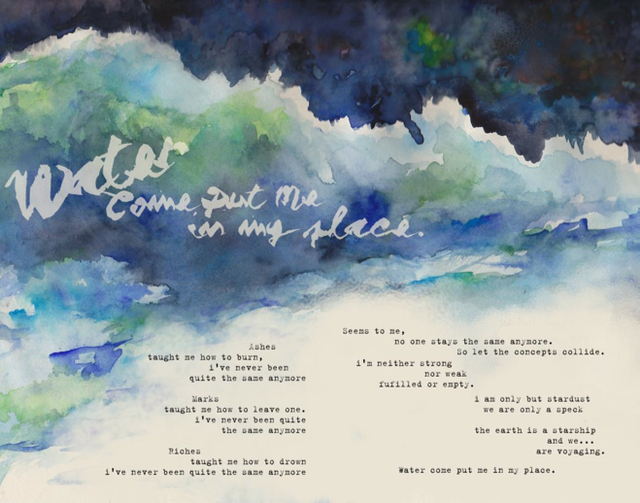 Water
Come put me
in my place.
Ashes
taught me how to burn,
i've never been
quite the same anymore
Marks
taught me how to leave one.
i've never been quite
the same anymore
Riches
taught me how to drown
i've never been quite the same anymore
Seems to me,
no one stays the same anymore.
So let the concepts collide.
i'm neither strong
nor weak
fufilled or empty.
i am only but stardust
we are only a speck
the earth is a starship
and we...
are voyaging.
Water come put me in my place.